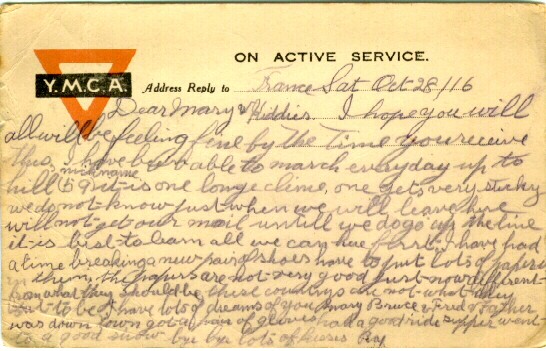 ON ACTIVE SERVICE.
Y.M.C.A.
Address Reply to France Sat Oct 28/16
Dear Mary & Kiddies. I hope you will
all will be feeling fine by the time you receive
this, I have been able to march everyday up to
hill it is one longe clime, one gets very sticky
we do not know just when we will leave here
will not get our mail untill we do go up the line
it is best to learn all we can hue first, I have had
a time breaking a new pair of shoes have to put lots of paper
in them, the papers are not very good just now different
from what they should be, these countrys are not what they
out to be I have lots of dreams of you Mary Bruce & Fred & Father
was down town got a pair of gloves, had a good ride supper went
to a good show bye bye lots of kisses